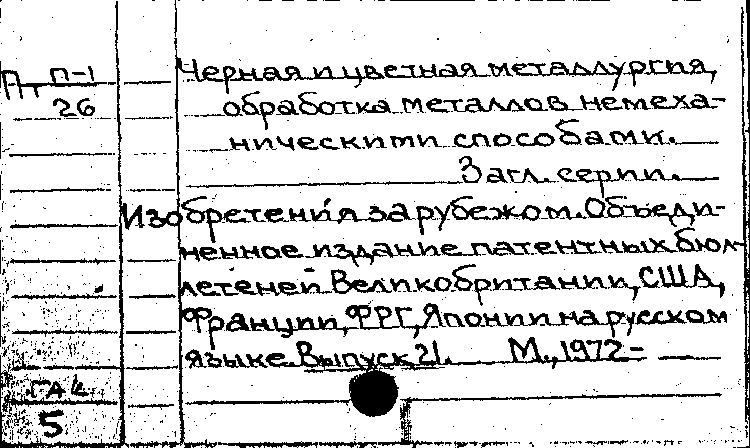 П, П-1
26
Черная и цветная металлургия,
обработка металлов немеха-
ническими способами.
Загл. серии.
Изобретения за рубежом. Объеди-
ненное издание патентных бюл-
летеней Великобритании, США,
Франции, ФРГ, Японии на русском
языке. Выпуск 21. М., 1972 -
5